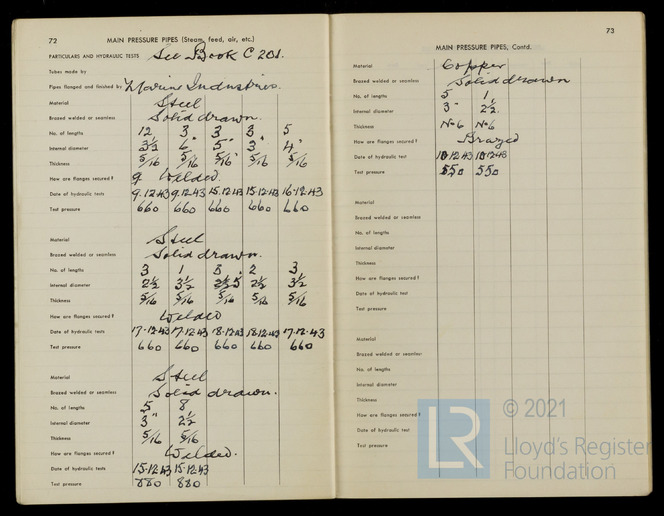 72
MAIN PRESSURE PIPES (Steam, feed, air, etc.)
PARTICULARS AND HYDRAULIC TESTS See Book C 201.
Tubes made by
Pipes flanged and finished by Marine Industries.
Material Steel
Brazed welded or seamless Solid drawn.
No. of lengths 12 3 3 3 5
Internal diameter 3½ 6" 5" 3" 4"
Thickness 5/16 5/16 5/16 5/16 5/16
How are flanges secured? Welded.
Date of hydraulic tests 9.12.43 9.12.43 15.12.43 15.12.43 16.12.43
Test pressure 660 660 660 660 660
Material Steel
Brazed welded or seamless Solid drawn.
No. of lengths 3 1 3 2 3
Internal diameter 2½ 3½ 2½ 3½
Thickness 5/16 5/16 5/16 5/16 5/16
How are flanges secured? Welded
Date of hydraulic tests 17.12.43 17.12.43 18.12.43 18.12.43 17.12.43
Test pressure 660 660 660 660 660
Material Steel
Brazed welded or seamless Solid drawn.
No. of lengths 5 8
Internal diameter 3" 2½
Thickness 5/16 5/16
How are flanges secured? Welded.
Date of hydraulic tests 15.12.43 15.12.43
Test pressure 880 880
73
MAIN PRESSURE PIPES, Contd.
Material Copper
Brazed welded or seamless Solid drawn
No. of lengths 5 1
Internal diameter 3" 2½
Thickness No 6 No 6
How are flanges secured? Brazed
Date of hydraulic test 10.12.43 10.12.43
Test pressure 550 550
Material
Brazed welded or seamless
No. of lengths
Internal diameter
Thickness
How are flanges secured?
Date of hydraulic test
Test pressure
Material
Brazed welded or seamless
No. of lengths
Internal diameter
Thickness
How are flanges secured?
Date of hydraulic test
Test pressure
LR
© 2021
Lloyd's Register
Foundation